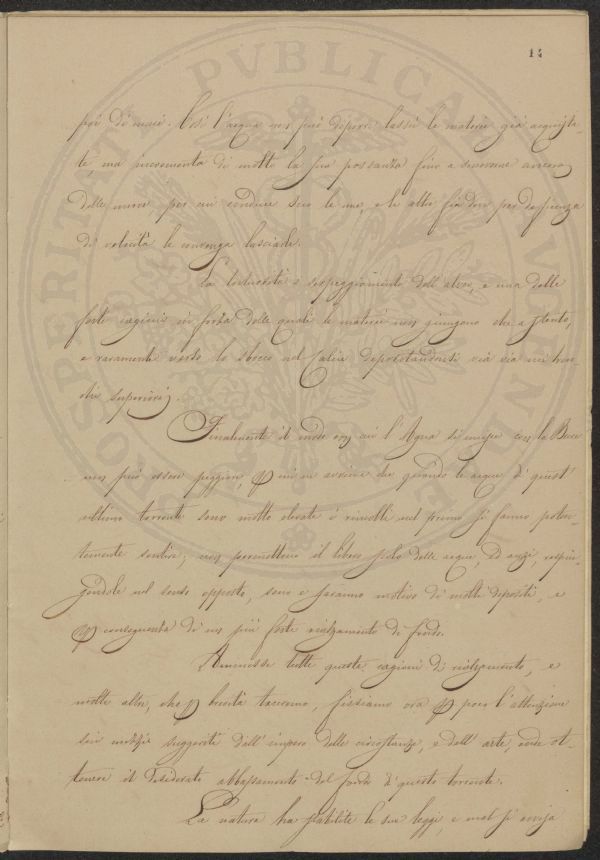 14
PROSPERITÀ PVBLICA VNIONE
più di mai. Così l'acqua non può deporre lassù le materie già acquista-
te, ma incrementa di molto la sua possanza fino a smuoverne ancora
delle nuove, per cui conduce seco le une, e le altre fin dove per deficienza
di velocità le convenga lasciarle.
La tortuosità e serpeggiamento dell'alveo, e una delle
forti cagioni in forza delle quali le materie non giungono che a stento,
e raramente verso lo sbocco nel Calcia depositandosi via via nei tron-
chi superiori.
Finalmente il modo con cui l'Agna si unisce con la
non può essere peggiore, mentre avviene che quando le acque di quest'
ultimo torrente sono molto elevate i rivolti nel primo si fanno poten-
temente sentire; non permettono il libero scolo delle acque, ed anzi, respin-
gendole nel senso opposto, sono e saranno motivo di molti depositi, e
conseguenza di un più forte rialzamento di fondo.
Ammesse tutte queste cagioni di rialzamento, e
molte altre, che brevità taceremo, fissiamo ora poco l'attenzione
sui modi suggeriti dall'impero delle circostanze, e dall'arte, onde ot-
tenere il desiderato abbassamento del fondo di questo torrente.
La natura ha stabilite le sue leggi, e mal si avvisa